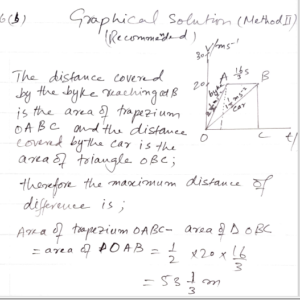 6(b) Graphical Solution (Method II)
(Recommended)
30 V/ms-1
20 A 16/3 s B
The distance covered
by the byke reaching at B
is the area of trapezium
OABC and the distance
covered by the car is the
area of triangle OBC;
byke
car
O C t/
therefore the maximum distance of
difference is ;
Area of trapezium OABC - area of Δ OBC
= area of ΔOAB = 1/2 × 20 × 16/3
= 53 1/3 m